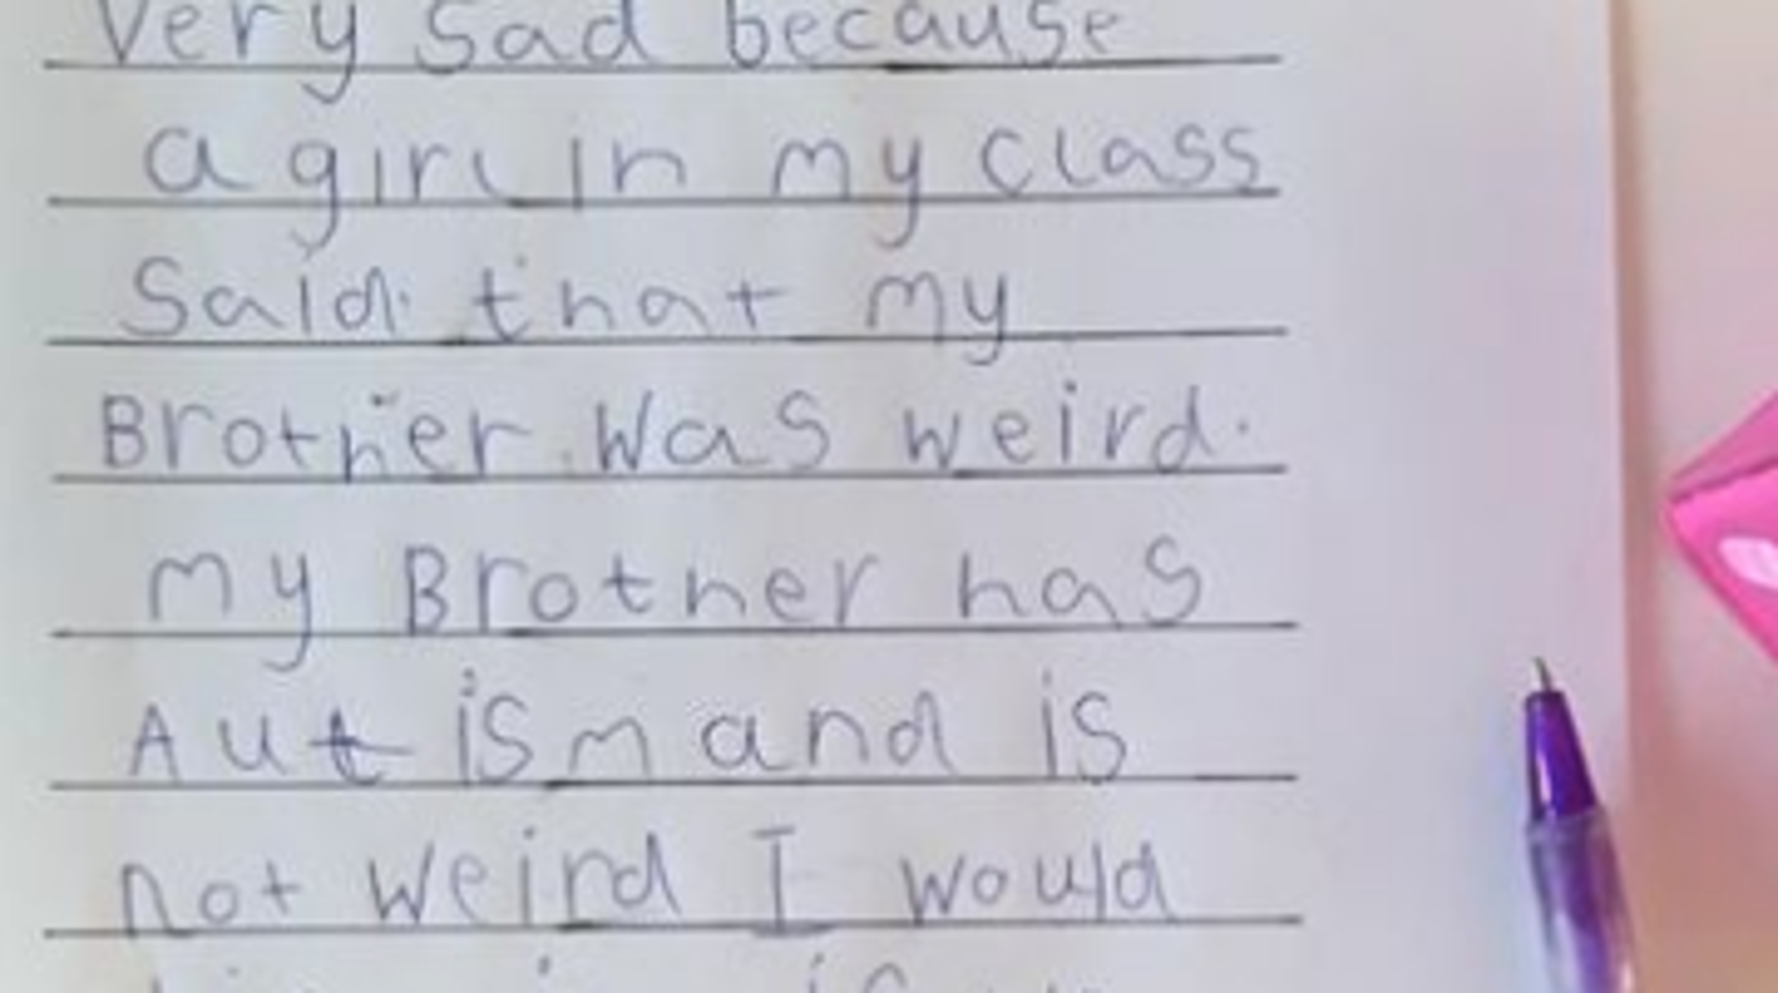 Very Sad because
a girl in my class
Said that my
Brother Was weird.
my Brother has
Autism and is
not weird I would